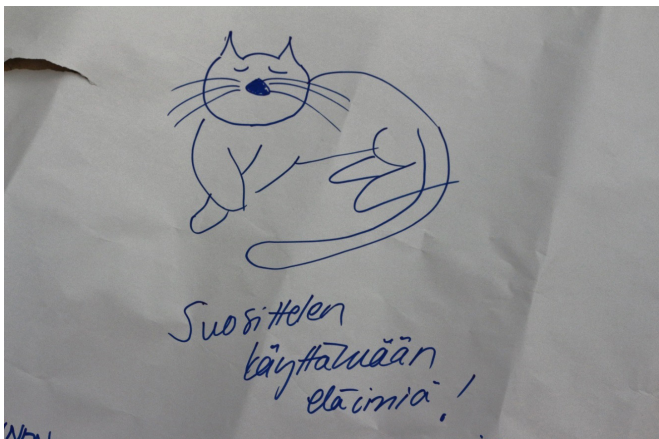 Suosittelen
käyttämään
eläimiä!